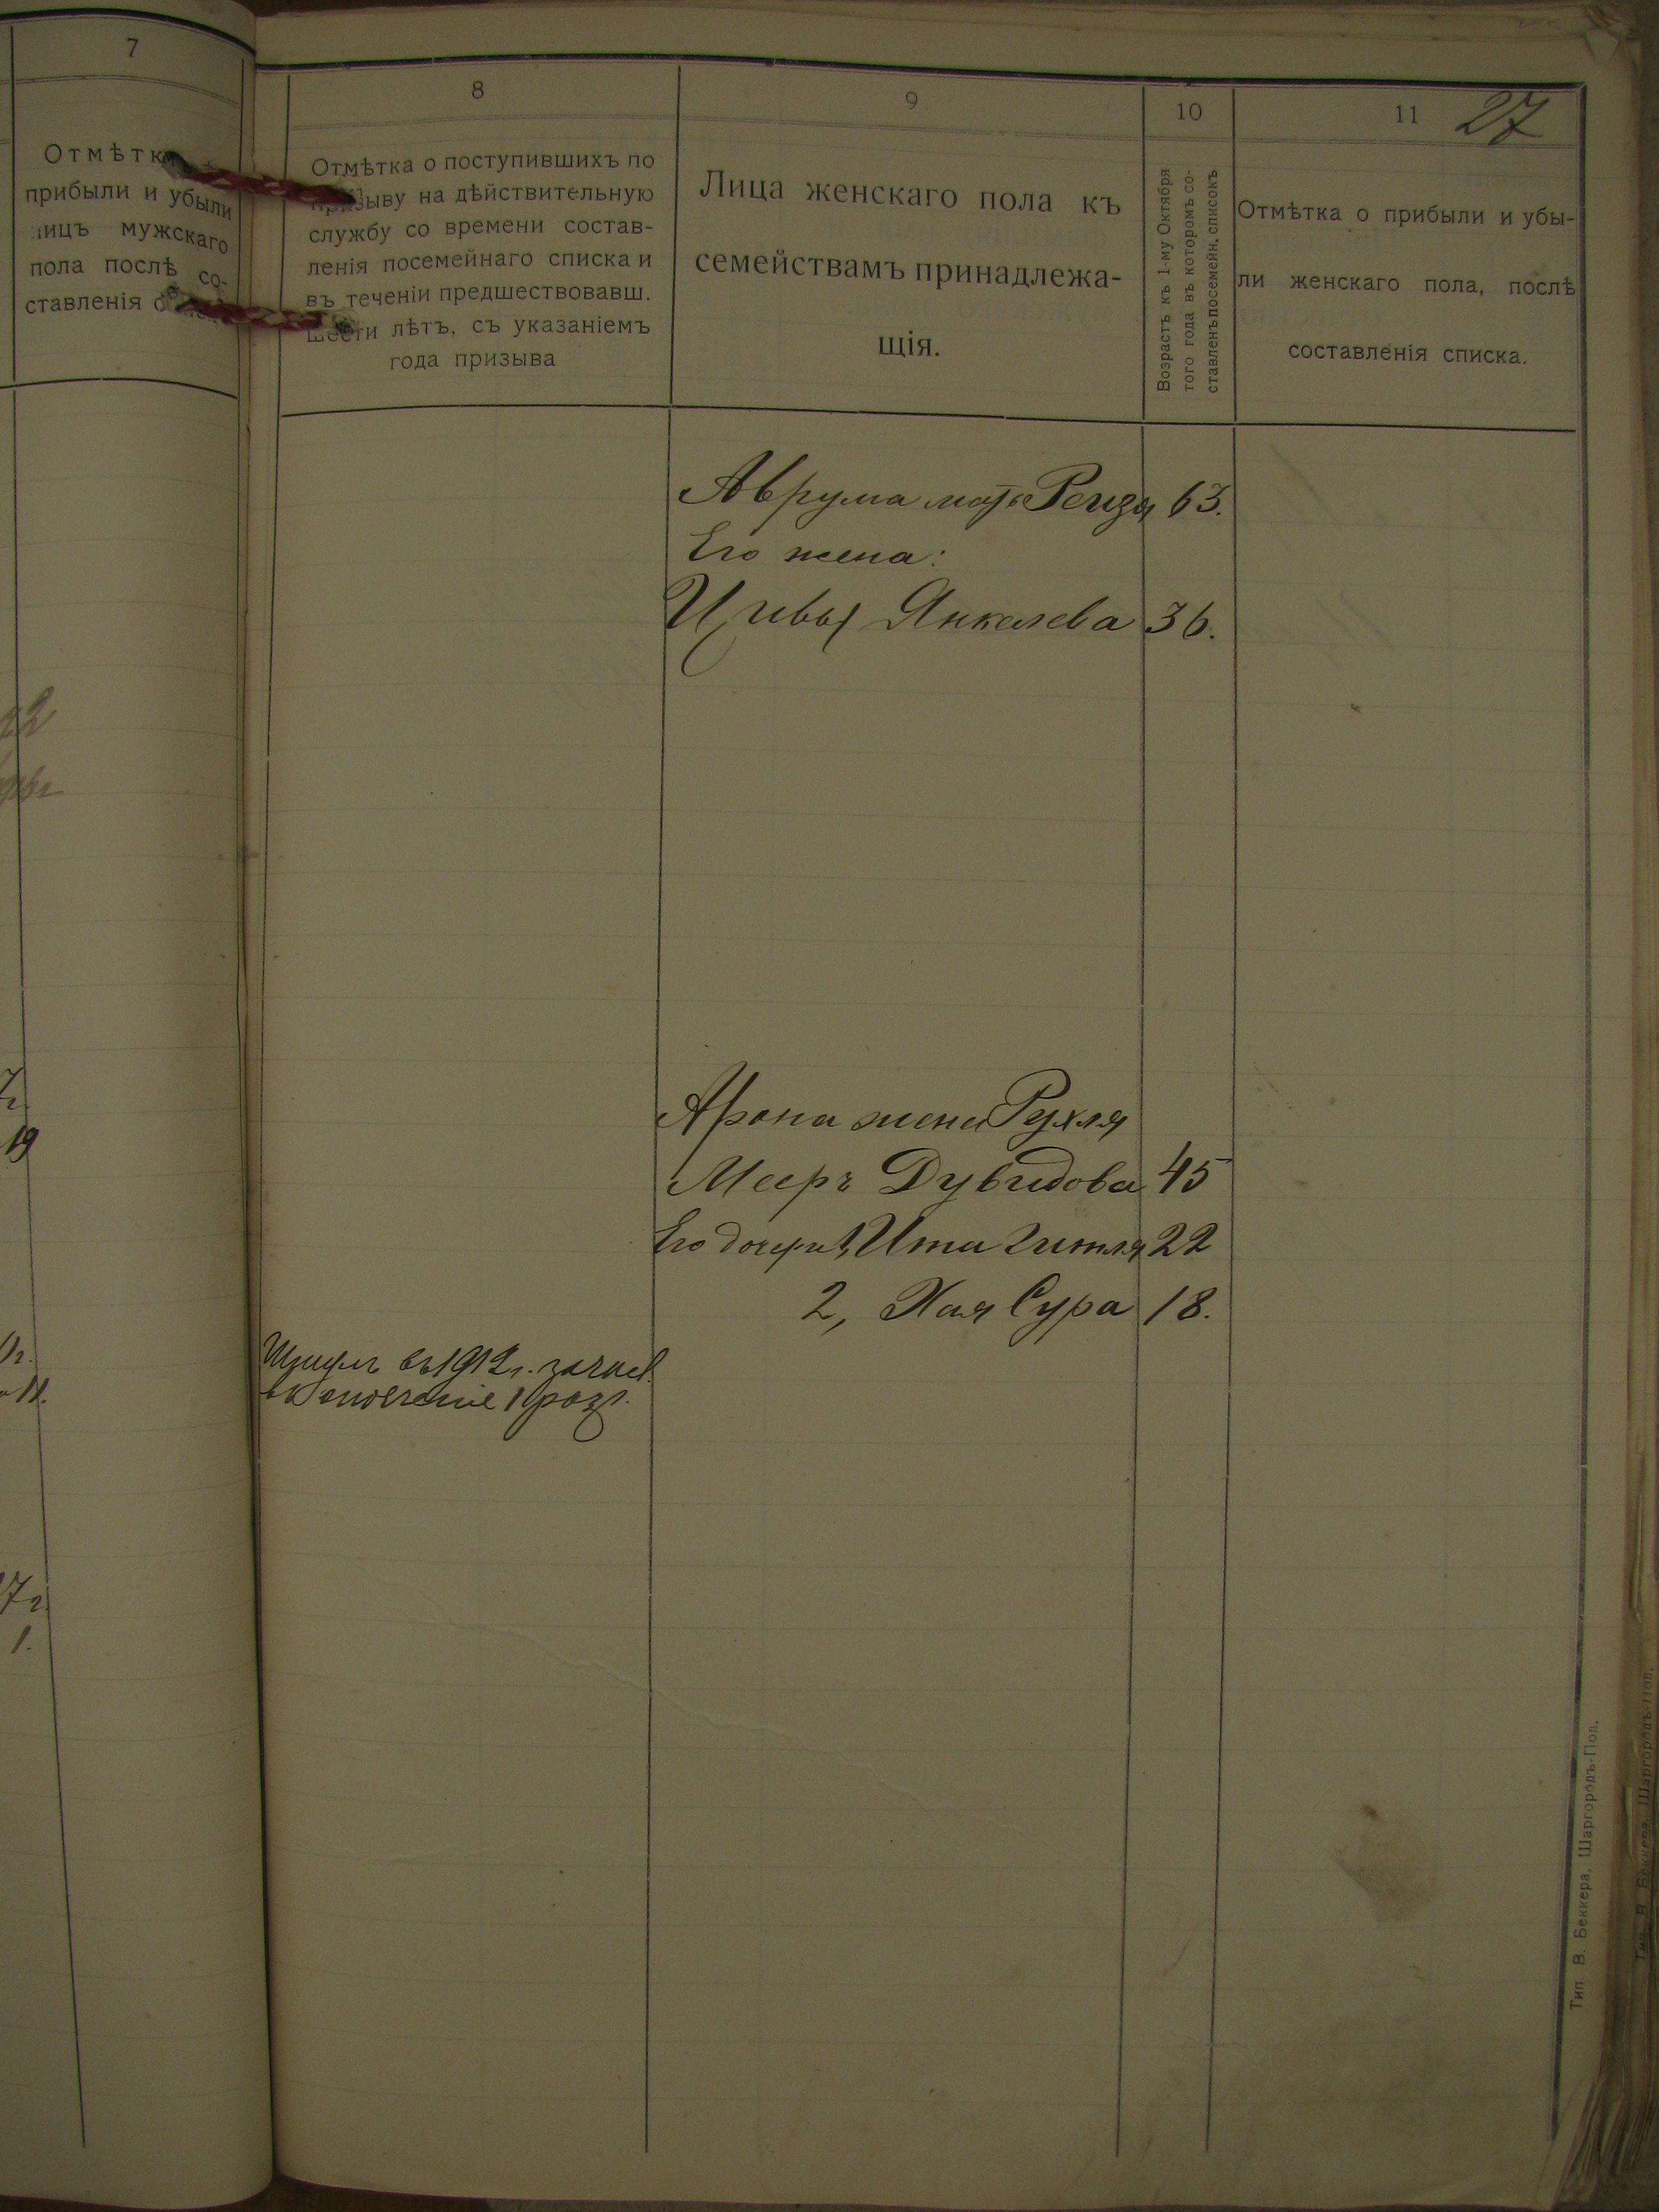 7
Отмѣтк
прибыли и убыли
лицъ мужскаго
пола послѣ со-
ставленія
22
19
11.
7г
1.
8
Отмѣтка о поступившихъ по
призыву на дѣйствительную
службу со времени состав-
ленія посемейнаго списка и
въ теченіи предшествовавш.
шести лѣтъ, съ указаніемъ
года призыва
въ 1912г. зачисл.
въ ополченіе 1 разр.
9
Лица женскаго пола къ
семействамъ принадлежа-
щія.
10
Возрастъ къ 1-му Октября
того года въ которомъ со-
ставленъ посемейн. списокъ
11 27
Отмѣтка о прибыли и убы-
ли женскаго пола, послѣ
составленія списка.
Аврума мать Рейзя 63.
Его жена:
Цивья Янкелева 36.
Арона жена Рухля
Мееръ Дувидова 45
Его дочери 1, Ита Гитля 22
2, Хая Сура 18.
Тип В. Беккера, Шаргородъ-Под.